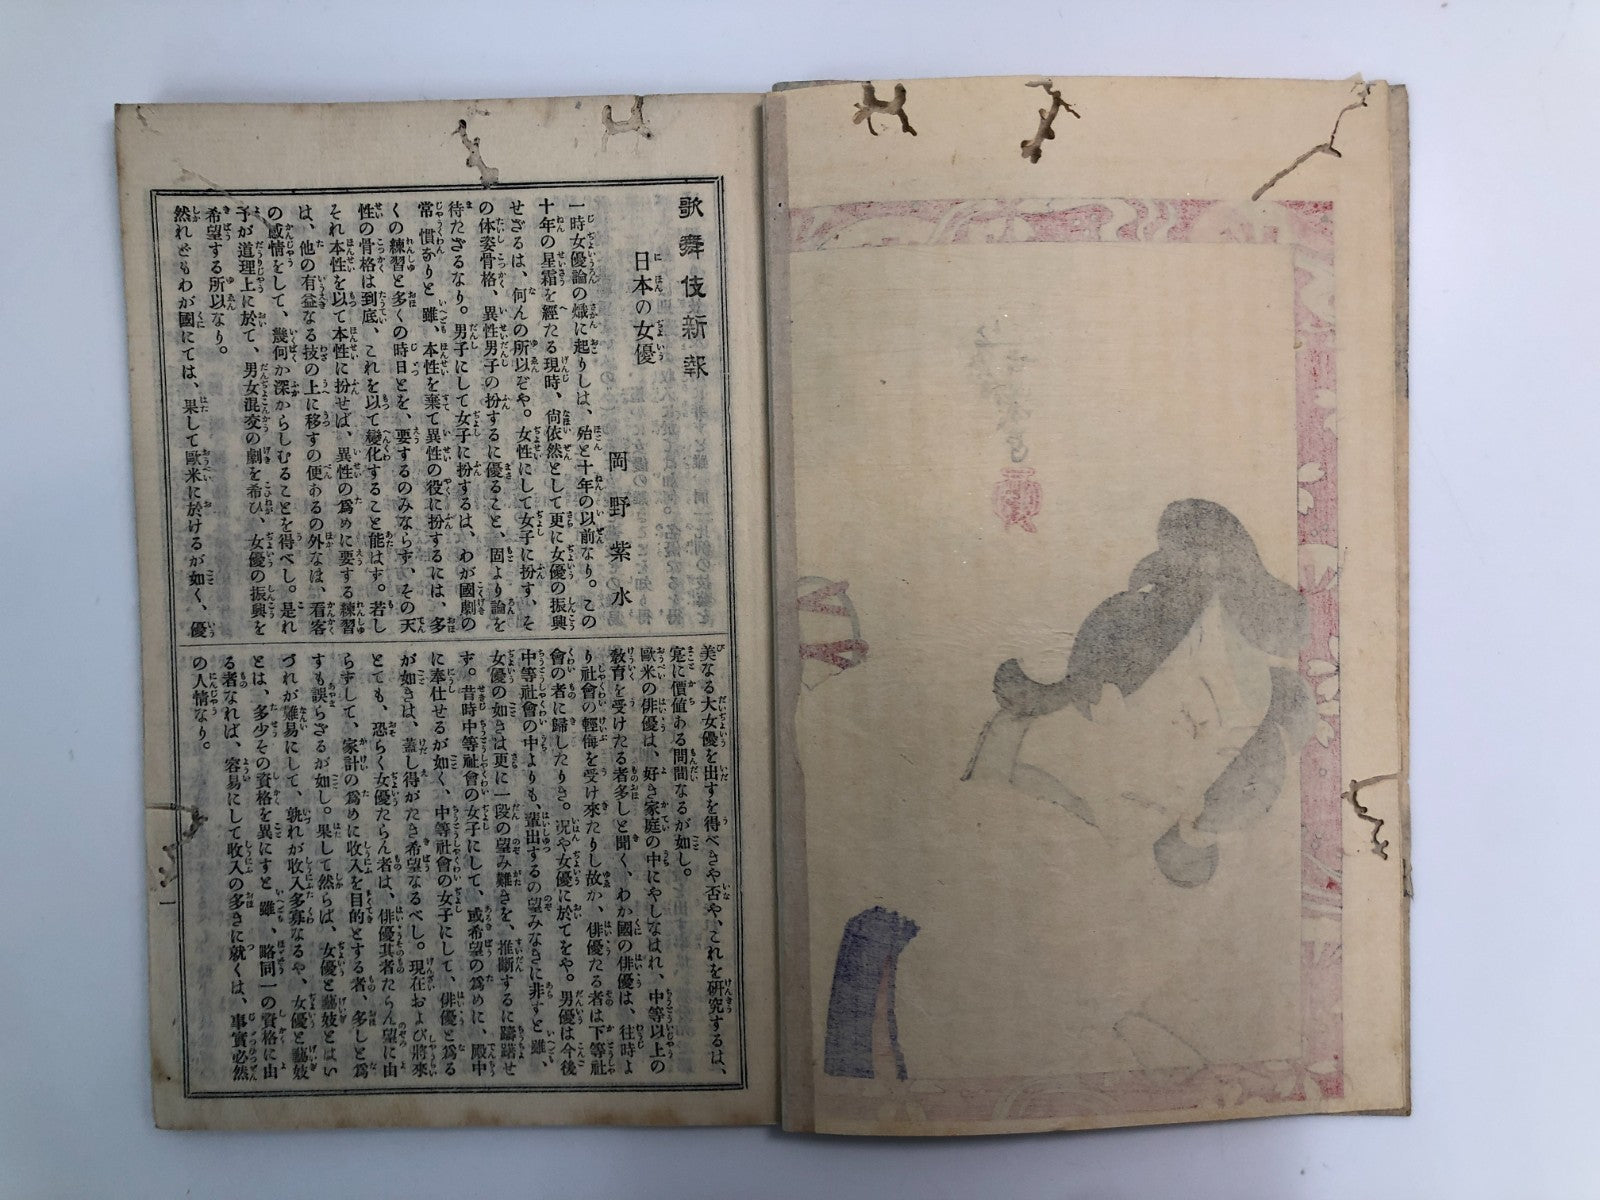 歌舞伎新報
日本の女優
岡野紫水
一時女優論の熾に起りしは、殆と十年の以前なり。この
十年の星霜を經たる現時、尙依然として更に女優の振興
せざるは、何んの所以ぞや。女性にして女子に扮す、そ
の体姿骨格、異性男子の扮するに優ること、固より論を
待たざるなり。男子にして女子に扮するは、わが國劇の
常慣なりと雖、本性を棄て異性の役に扮するには、多
くの練習と多くの時日とを、要するのみならす、その天
性の骨格は到底、これを以て變化すること能はす。若し
それ本性を以て本性に扮せば、異性の爲めに要する練習
は、他の有益なる技の上に移すの便あるの外なほ、看客
の感情をして、幾何か深からしむることを得べし。是れ
予が道理上に於て、男女混交の劇を希ひ、女優の振興を
希望する所以なり。
然れどもわが國にては、果して歐米に於けるが如く、優
美なる大女優を出すを得べきや否や、これを研究するは、
寔に價値ある問題なるが如し。
歐米の俳優は、好き家庭の中にやしなはれ、中等以上の
敎育を受けたる者多しと聞く、わか國の俳優は、往時よ
り社會の輕侮を受け來たりし故か、俳優たる者は下等社
會の者に歸したりき。况や女優に於てをや。男優は今後
中等社會の中よりも、輩出するの望みなきに非すと雖、
女優の如きは更に一段の望み難きを、推斷するに躊躇せ
す。昔時中等社會の女子にして、或希望の爲めに、殿中
に奉仕せるが如く、中等社會の女子にして、俳優と爲る
が如きは、蓋し得がたき希望なるべし。現在および將來
とても、恐らく女優たらん者は、俳優其者たらん望に由
らずして、家計の爲めに收入を目的とする者、多しと爲
すも誤らざるが如し。果して然らば、女優と藝妓とはい
づれが難易にして、孰れが收入多寡なるや、女優と藝妓
とは、多少その資格を異にすと雖、略同一の資格に由
る者なれば、容易にして收入の多きに就くは、事實必然
の人情なり。